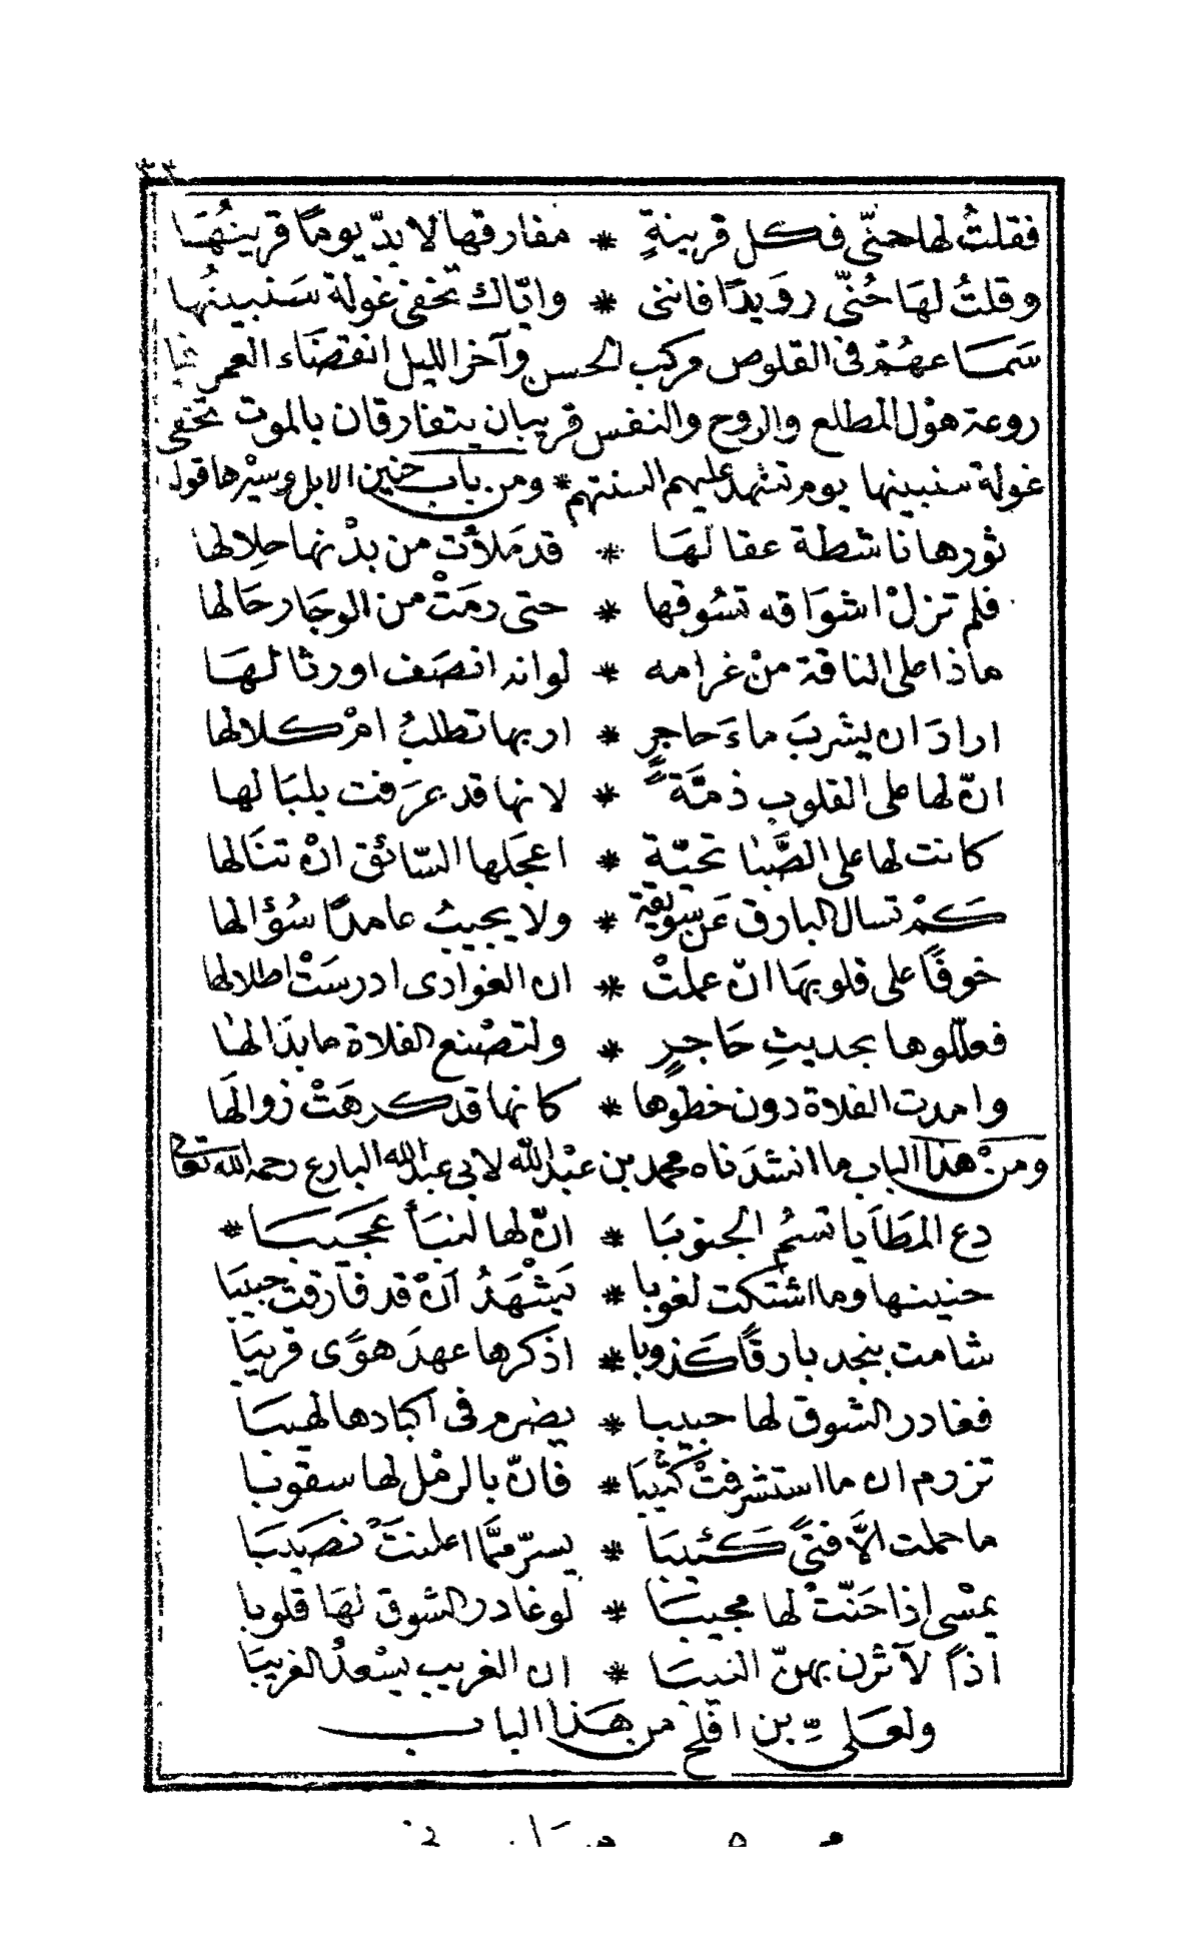 ٣٣
فقلتُ لها حنّى فكل قرينةٍ * مفارقها لا بدّ يومًا قرينُهَا
وقلتُ لهَا حُنّى روَيدًا فاننى * واياك تخفى غولة سَنبينُها
سَمَاعهُمْ فى القلوص مركب الحسن وآخر الليل انقضَاء العمر
روعة هوْل المطلع والروح والنفس قريبان يتفارقان بالموت تخفى
غولة سنبينها يوم تشهد عليهم السنتهم * ومن باب حنين الابل وسيْرها قوله
ثورها ناشطة عقالهَا * قد مَلأت من بدْنها جلالها
فلم تزلْ اشوَاقه تسُوقها * حتى رمَتْ من الوجَا رحَالها
ماذا على الناقة منْ غرامه * لو انه انصَف اورثا لهَا
ارادَ ان يشربَ ماءَ حاجرٍ * اربها تطلبُ امْ كلالها
انّ لها على القلوب ذمّةً * لانها قد عرَفت بلبَالها
كانت لها على الصَّبا تحيّة * اعجَلها السّائق انْ تنَالها
كَمْ تسال البارق عَن سويقة * ولا يجيبُ عامدًا سُؤالها
خوفًا على قلوبهَا انْ علمتْ * ان الغوادى ادرسَتْ اطلالها
فعلّلوها بحديثِ حَاجرٍ * ولتصْنع الفلاة ما بدَا لها
وامدت الفلاة دون خطوها * كانها قد كرهَتْ زوالَها
ومنْ هذا الباب ما انشدَناه محمد بن عبْد الله لابى عبد الله البارع رحمه الله تعالى
دع المطَايا تنسمُ الجنوبَا * انّ لها لنبَأً عَجَيبَا *
حنينها وما اشتكت لغوبا * يَشْهَدُ اَنْ قد فارقت حبيبَا
شامت بنجد بارقًا كَذوبا * اذكرها عهدَ هوًى قريبَا
فغادر الشوق لها حبيبا * يضرم فى اكبادها لهيبَا
تزرم ان ما استشرفتْ كثيبَا * فانّ بالرمْل لها سقوبا
ما حملت الَّا فتًى كَئيبَا * يسرّ ممَّا اعلنتْ نصَيبَا
يمْسى اذا حَنّتْ لها مجيبَا * لو غادر الشوق لهَا قلوبا
اذًا لآثرن بهنّ النيبَا * ان الغريب يسْعدُ الغريبَا
ولعَلىّ بن افلح من هَذا الباب